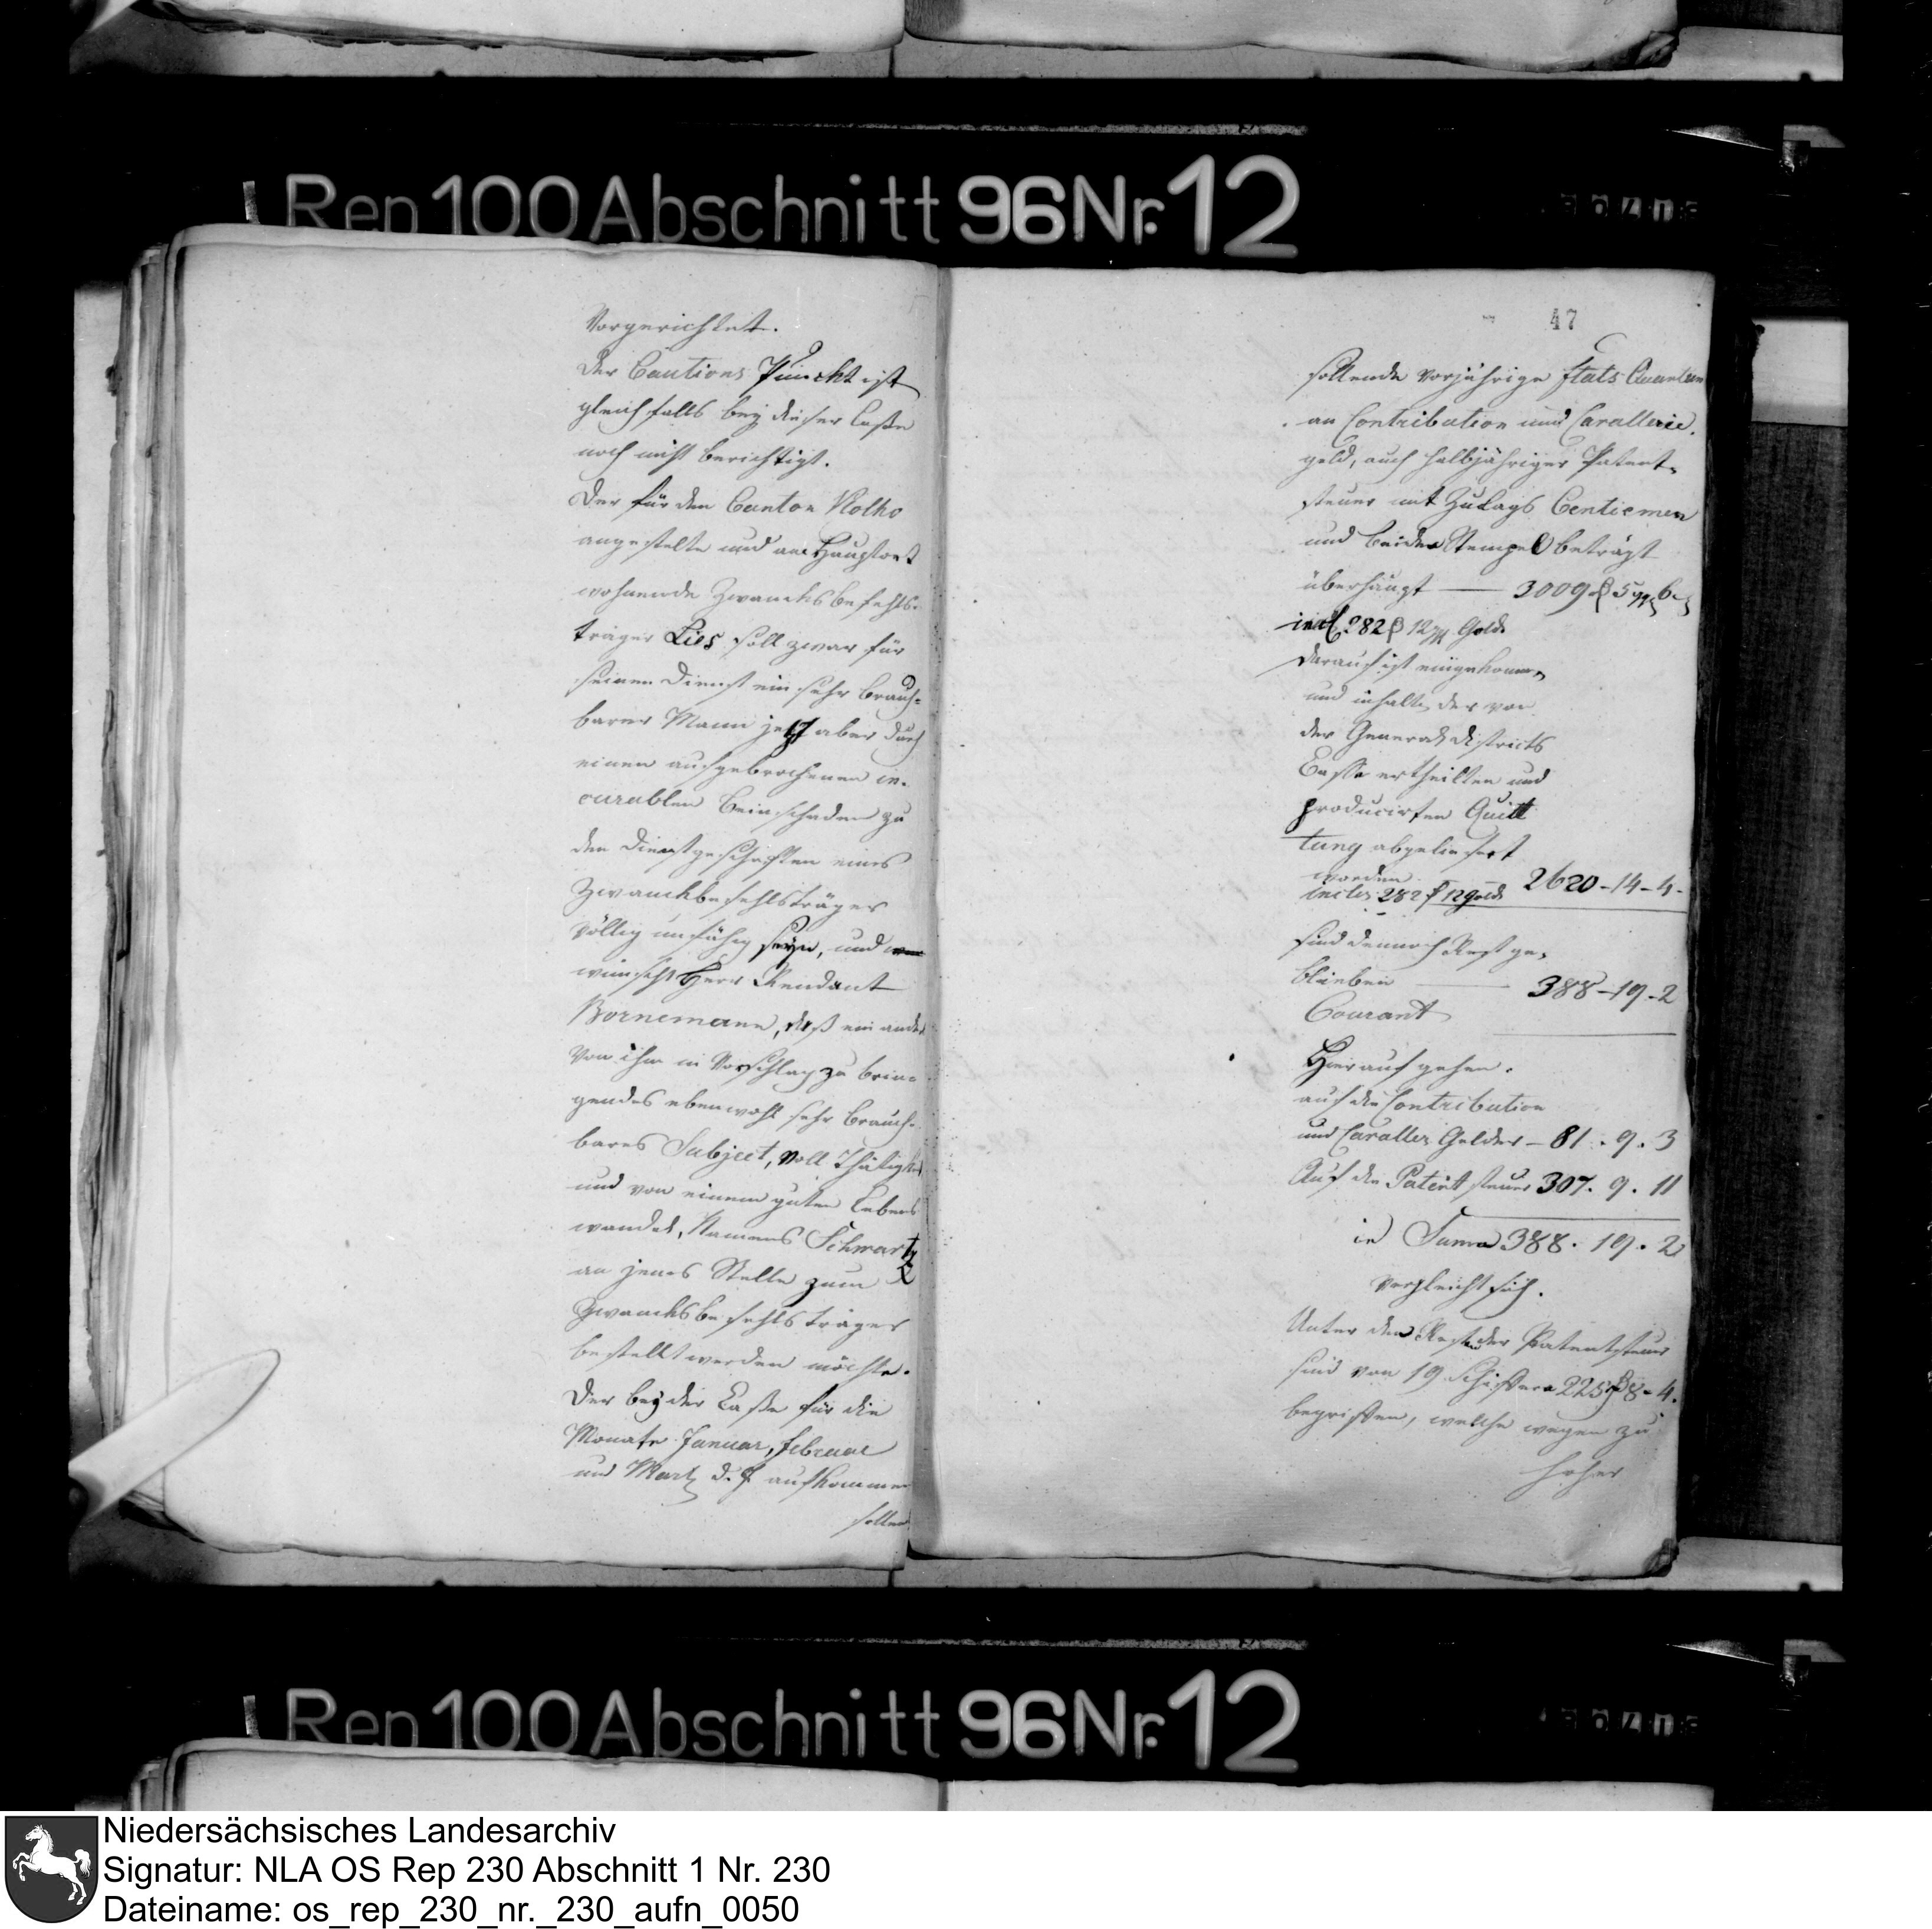 Rep 100 Abschnitt 96 Nr. 12
Vorgerichtet.
Der Cautions Punckt ist
gleichfalls bey dieser Casse
noch nicht berichtigt.
Der für den Canton Vlotho
angestelte und am Hauptort
wohnende Zwancksbefehls-
träger Lies soll zwar für
seinen Dienst ein sehr brauch-
barer Mann jetzt aber durch
einen aufgebrochenen in-
curablen Beinschaden zu
den Dienstgeschäften eines
Zwanckbefehlsträgers
völlig unfähig seyn, und
wünscht Herr Rendant
Bornemann, daß ein ander
von ihm in Vorschlag zu brin-
gendes ebenwohl sehr brauch-
bares Subject, voll Thätigkeit
und von einem guten Lebens
wandel, Namens Schwartz
an jenes Stelle zum
Zwancksbefehlsträger
bestellt werden möchte.
Der bey der Casse für die
Monate Januar, Februar
und Martz d. J. aufkommen
sollen
47
sollende vorjährige Etats Quantum
an Contribution und Cavallerie-
geld, auch halbjähriger Patent-
steuer mit Zulags Centiemen
und beider Stempel beträgt
überhaupt — 3009 5 6
incl. 282 12 Gold.
darauf ist eingekommen
und inhalts der von
der General districts
Casse ertheilten und
producirten Quitt
tung abgeliefert
worden 2620-14-4-
incl. 282 12 gold
sind dennoch Rest ge-
blieben — 388-19-2
Courant
Hierauf gehen.
auf die Contribution
und Cavaller Gelder - 81. 9. 3
Auf die Patent steuer 307. 9. 11
in Suma 388. 19. 2
vergleicht sich.
Unter den Resten der Patentsteuer
sind von 19 Schiffern 225 8-4.
begriffen, welche wegen zu
hoher
Rep 100 Abschnitt 96 Nr. 12
Niedersächsisches Landesarchiv
Signatur: NLA OS Rep 230 Abschnitt 1 Nr. 230
Dateiname: os_rep_230_nr._230_aufn_0050